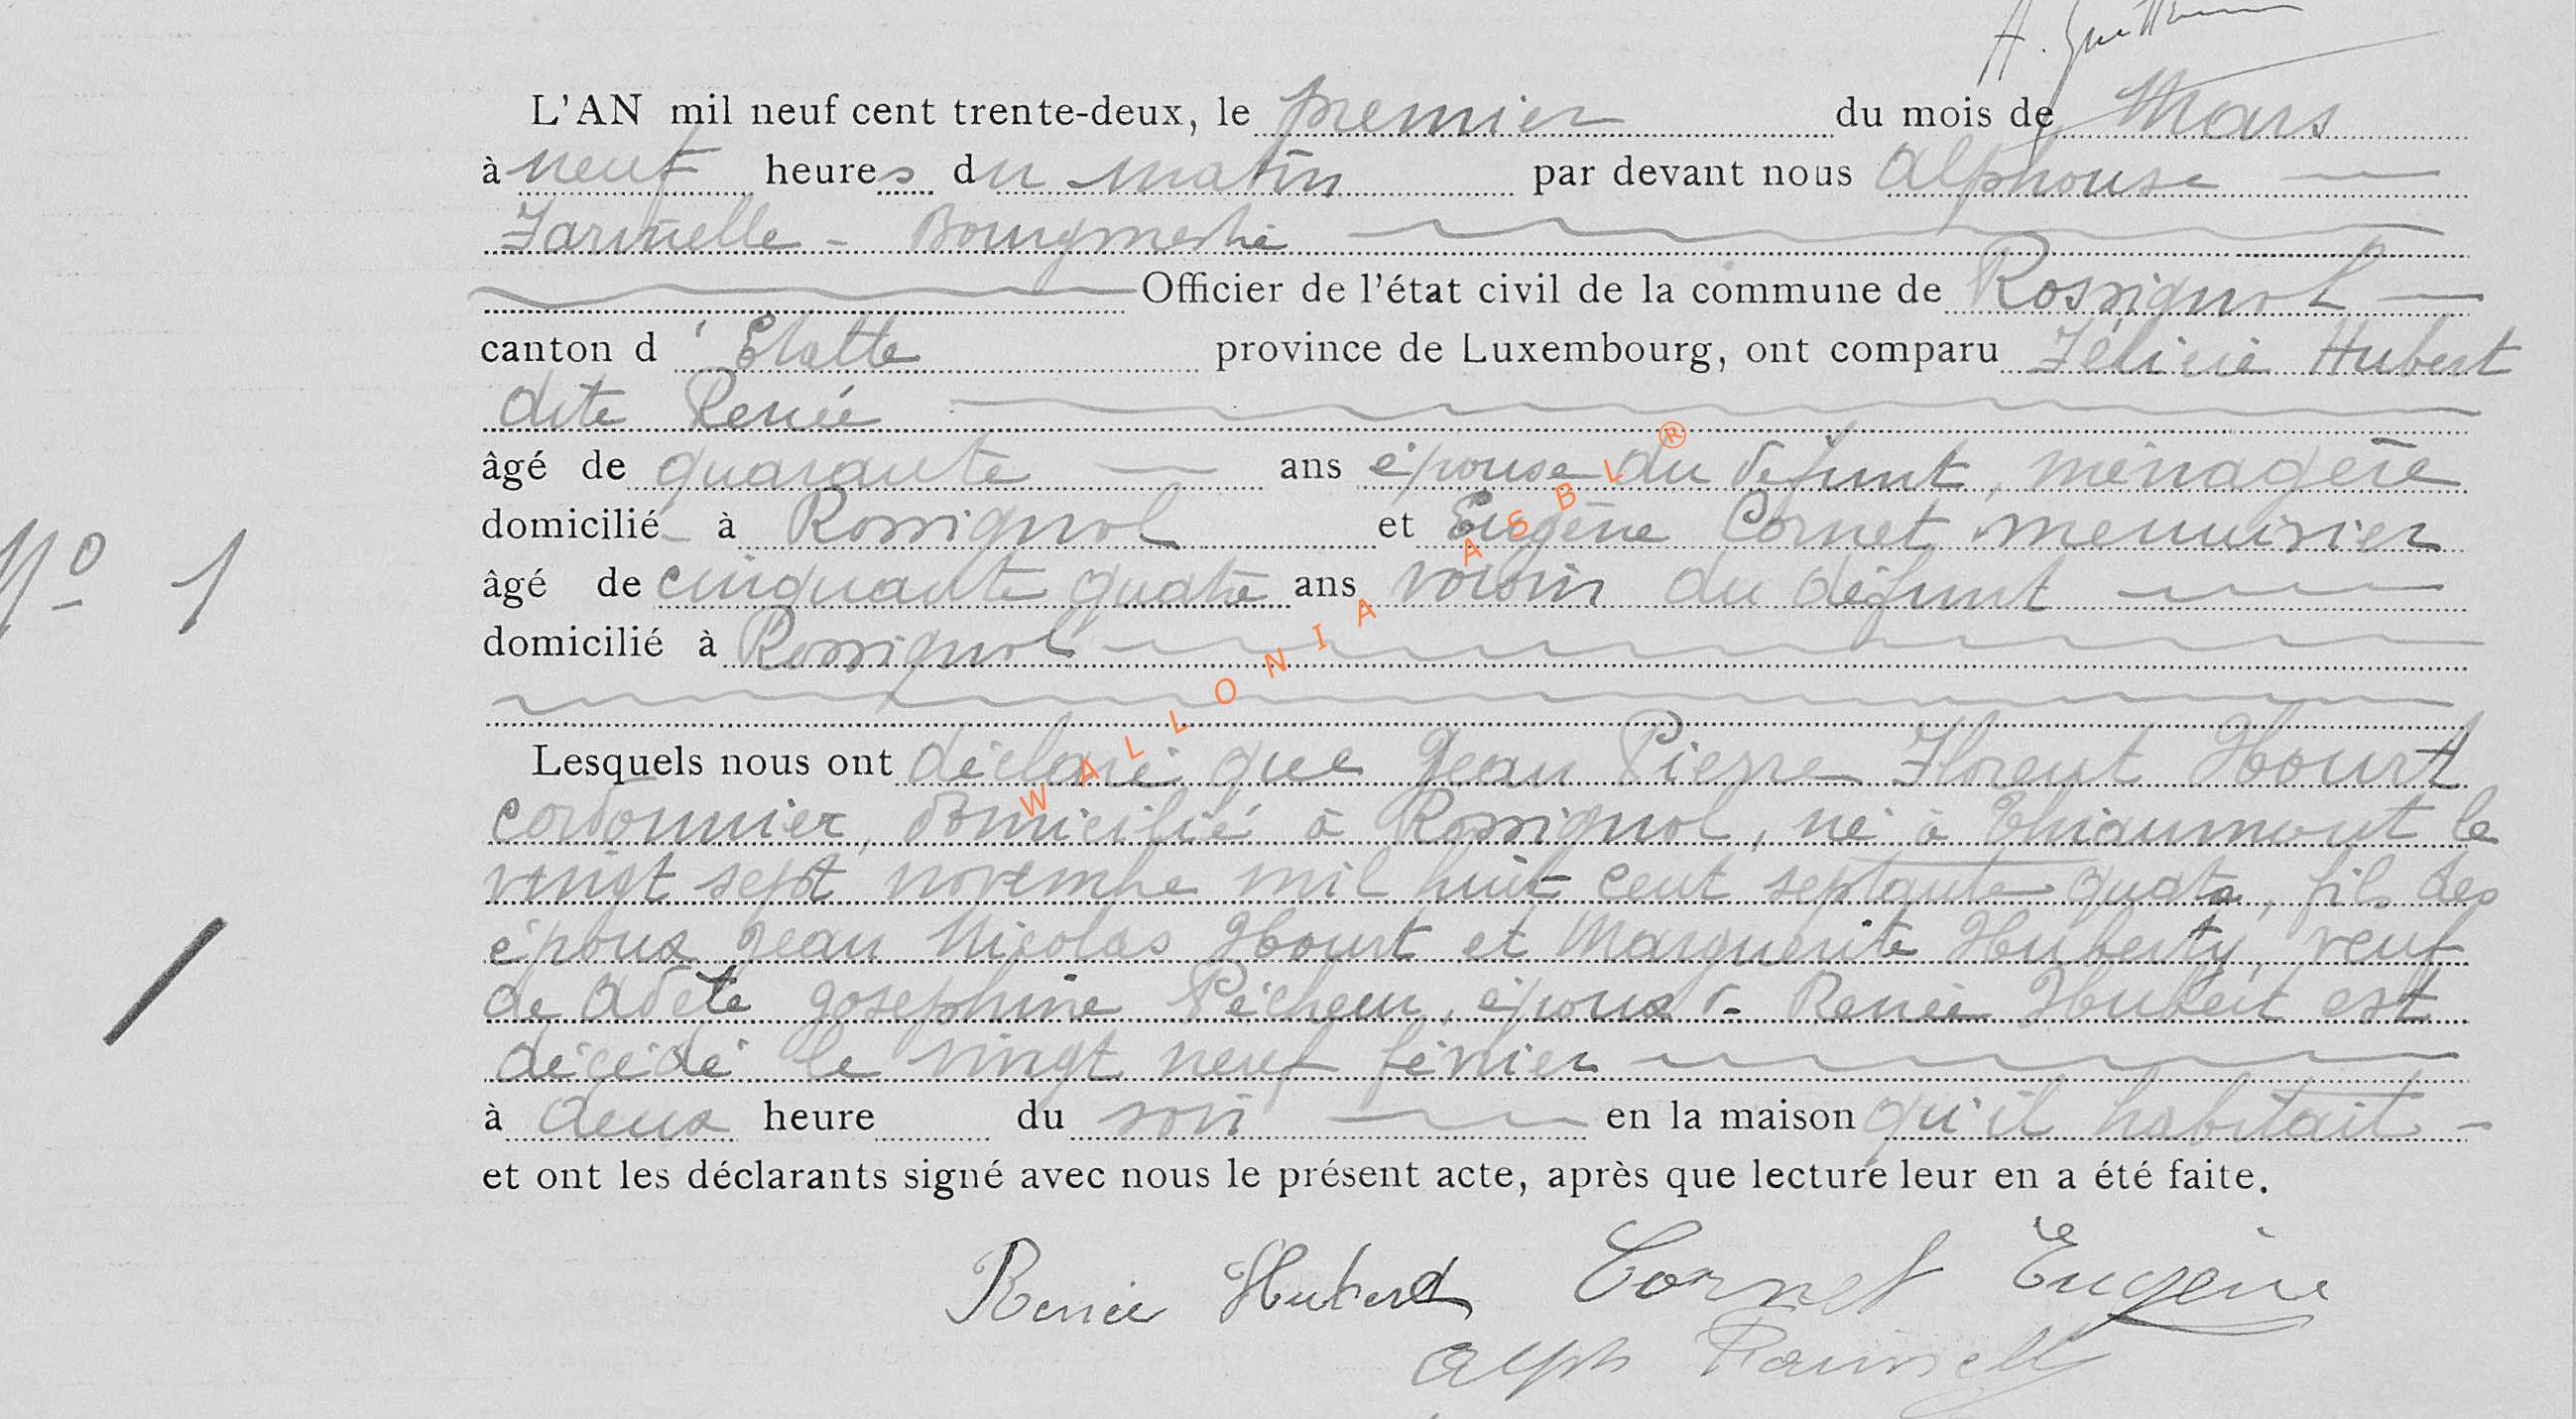 L'AN mil neuf cent trente-deux, le premier du mois de Mars
à neuf heures du matin par devant nous Alphonse
Farinelle - Bourgmestre
Officier de l'état civil de la commune de Rossignol
canton d'Etalle province de Luxembourg, ont comparu Félicie Hubert
dite Renée
âgé de quarante ans épouse du défunt, ménagère
domicilié à Rossignol et Eugène Cornet menuisier
Nº 1
âgé de cinquante quatre ans voisin du défunt
domicilié à Rossignol
WALLONIA ASBL ®
Lesquels nous ont déclaré que Jean Pierre Florent Hourt
cordonnier, domicilié à Rossignol, né à Thiaumont le
vingt sept novembre mil huit cent septante quatre, fils des
époux Jean Nicolas Hourt et Marguerite Huberty, veuf
de Adèle Josephine Pécheur, époux de Renée Hubert est
décédé le vingt neuf février
à deux heure du soir en la maison qu'il habitait
et ont les déclarants signé avec nous le présent acte, après que lecture leur en a été faite.
Renée Hubert Cornet Eugène
Alph